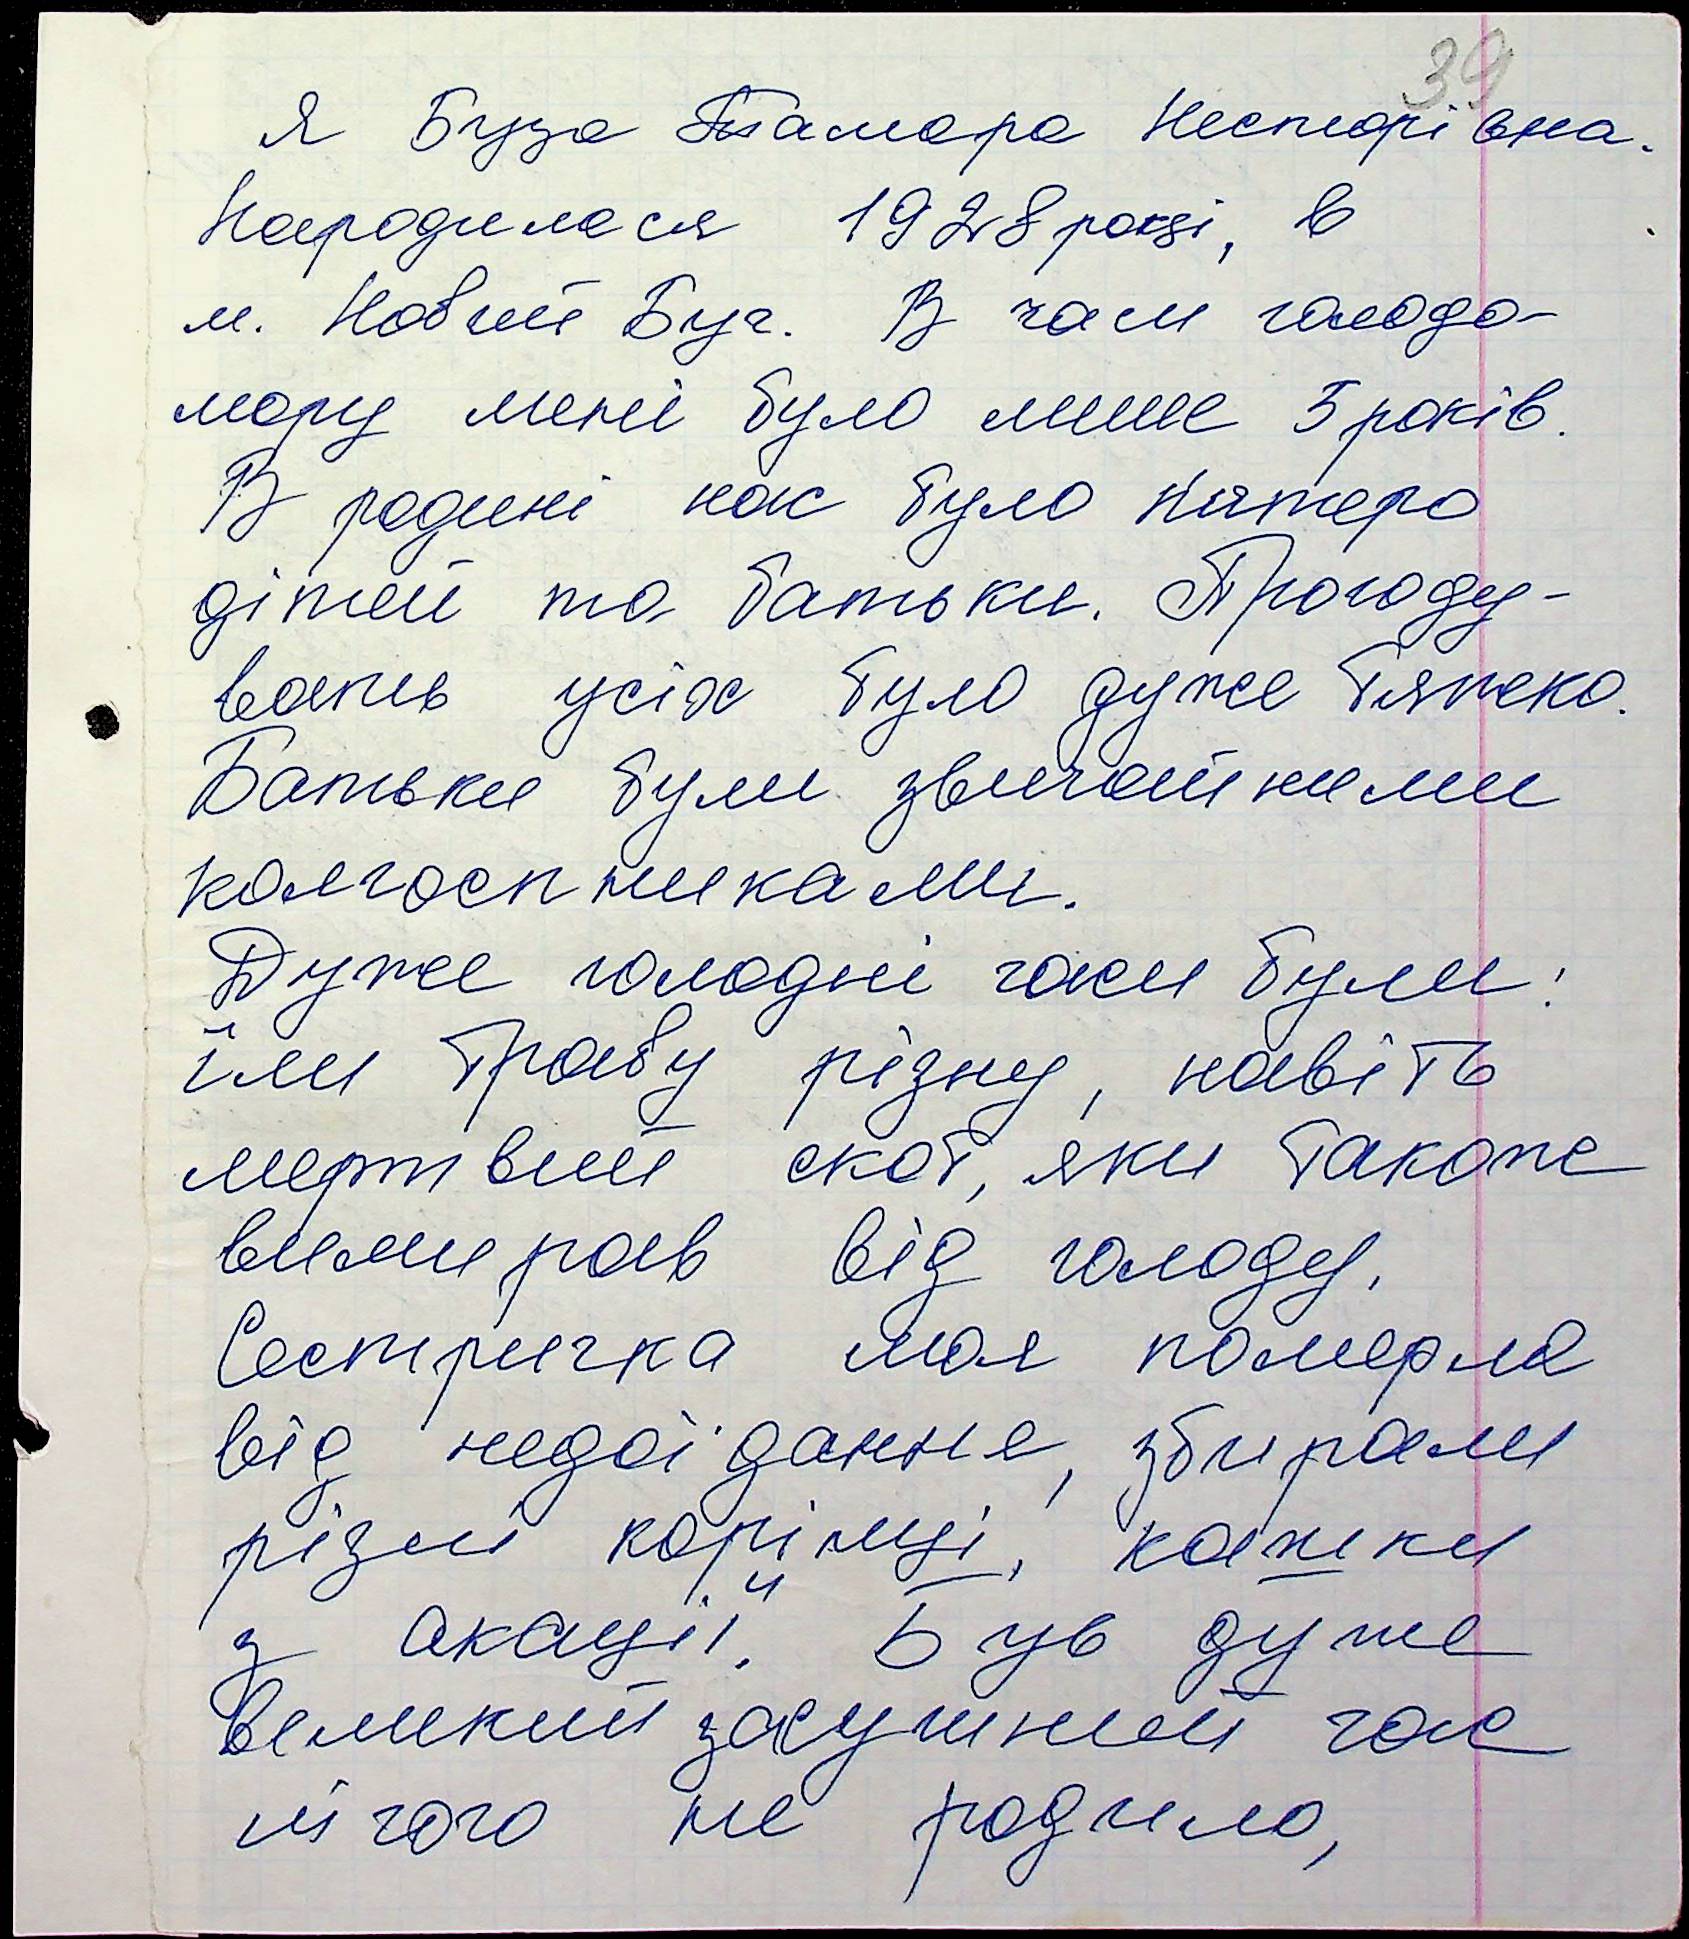 39
Я Буза Тамара Несторівна.
Народилася 1928 році, в
м. Новий Буг. В часи голодо-
мору мені було лише 5 років.
В родині нас було пятеро
дітей та батьки. Прогоду-
вать усіх було дуже тяжко.
Батьки були звичайними
колгоспниками.
Дуже голодні часи були:
їли траву різну, навіть
мертвий скот, яки також
вимирав від голоду.
Сестричка моя померла
від недоїдання, збирали
різні корінці, кашки
з акації. Був дуже
великий засушний час
нічого не родило,